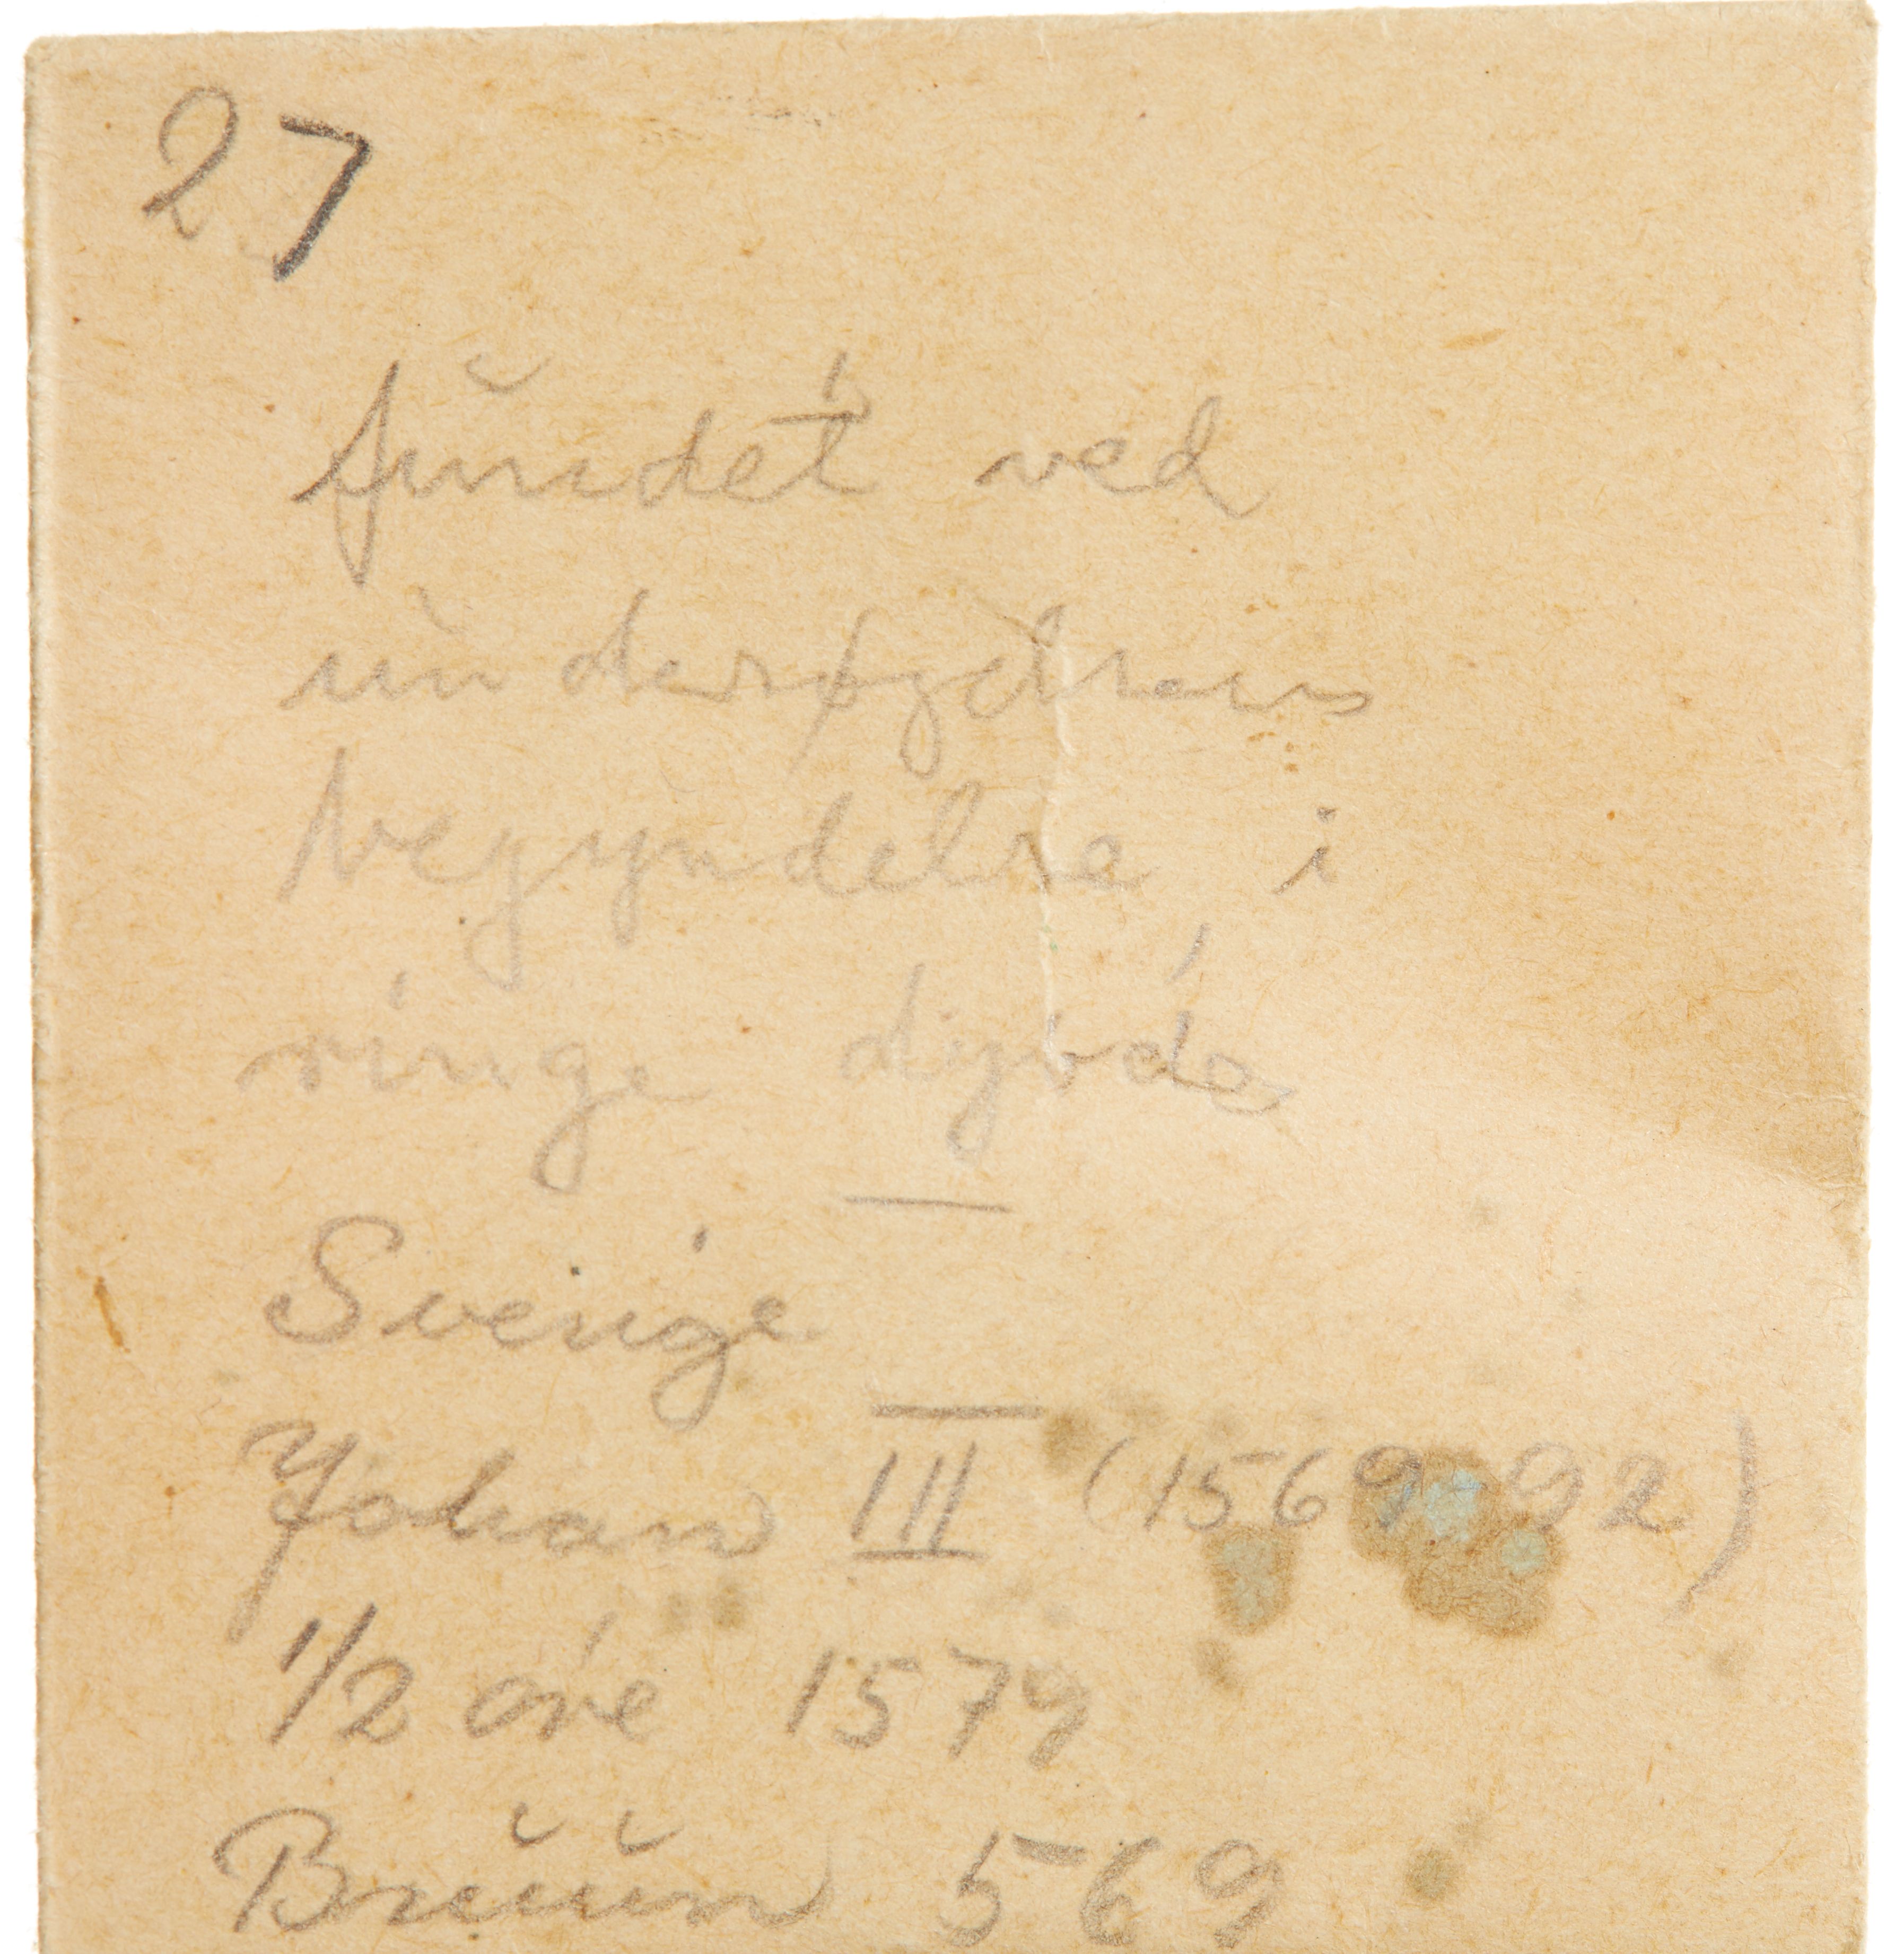 27
fundet ved
undersøgelsens
begyndelse i
ringe dybde
Sverige
Johan III (1569-92)
1/2 øre 1579
Bruun 569